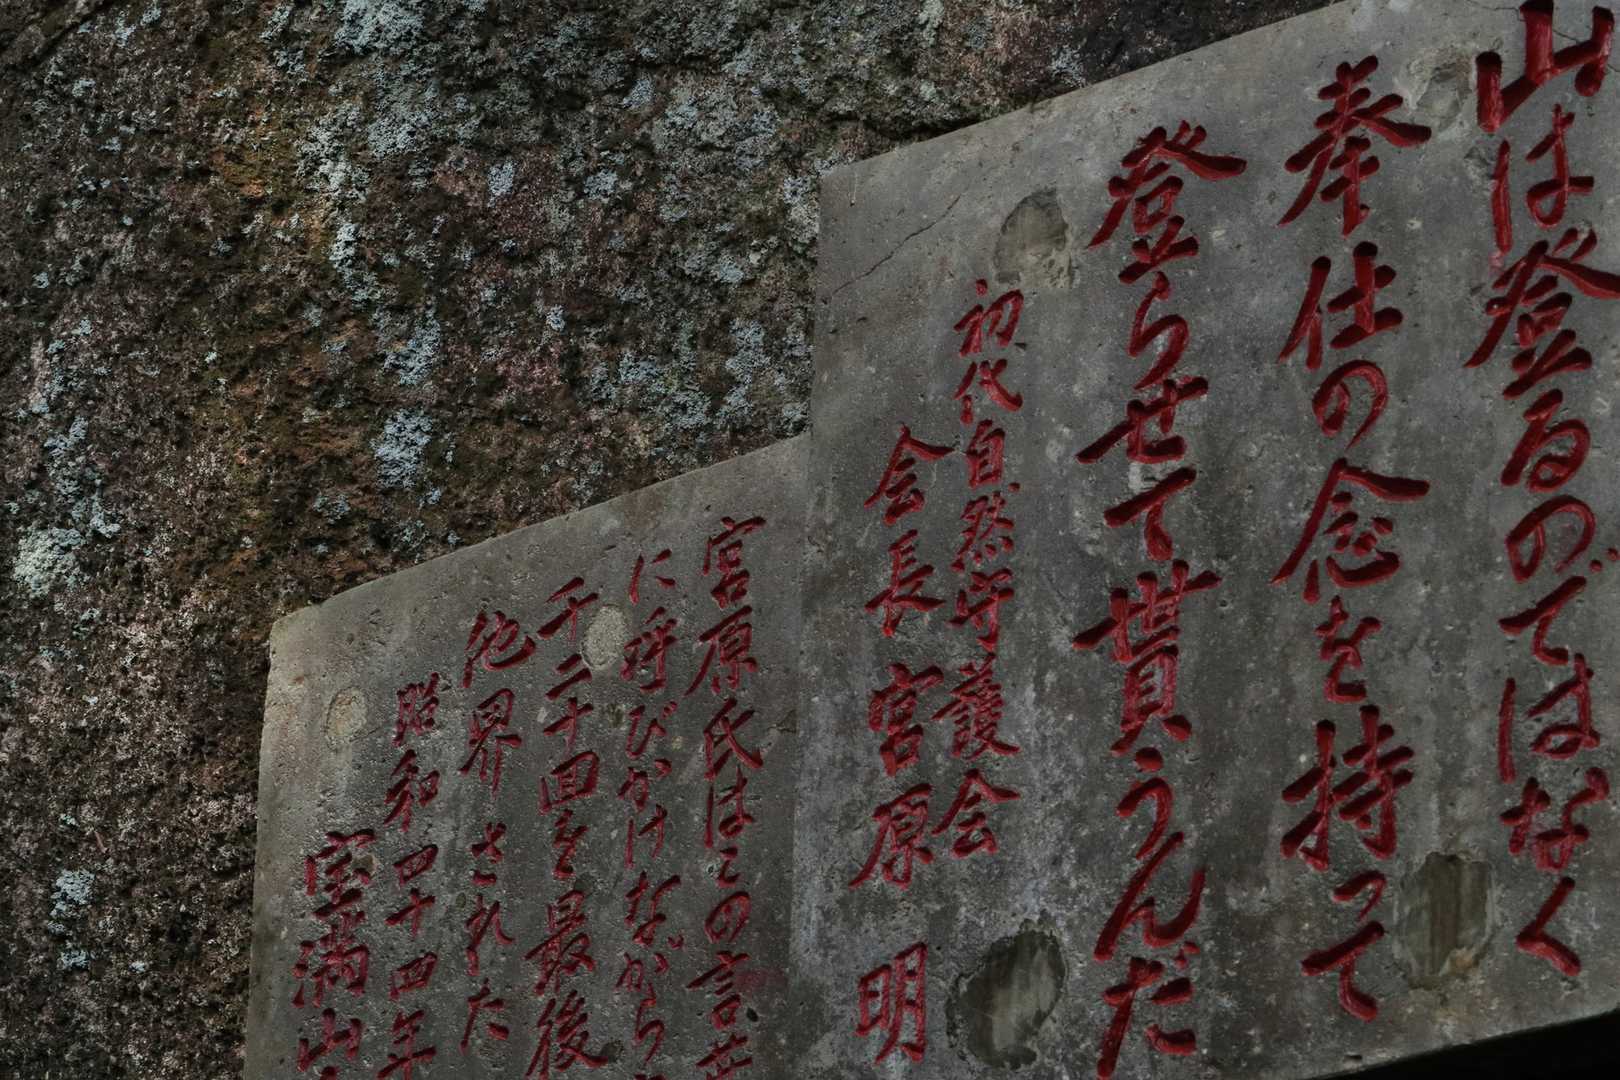 山は登るのではなく
奉仕の念を持って
登らせて貰うんだ
初代自然守護会
会長 宮原 明
宮原氏はこの言
に呼びかけながら
千二十回を最後
他界された
昭和四十四年
宝満山